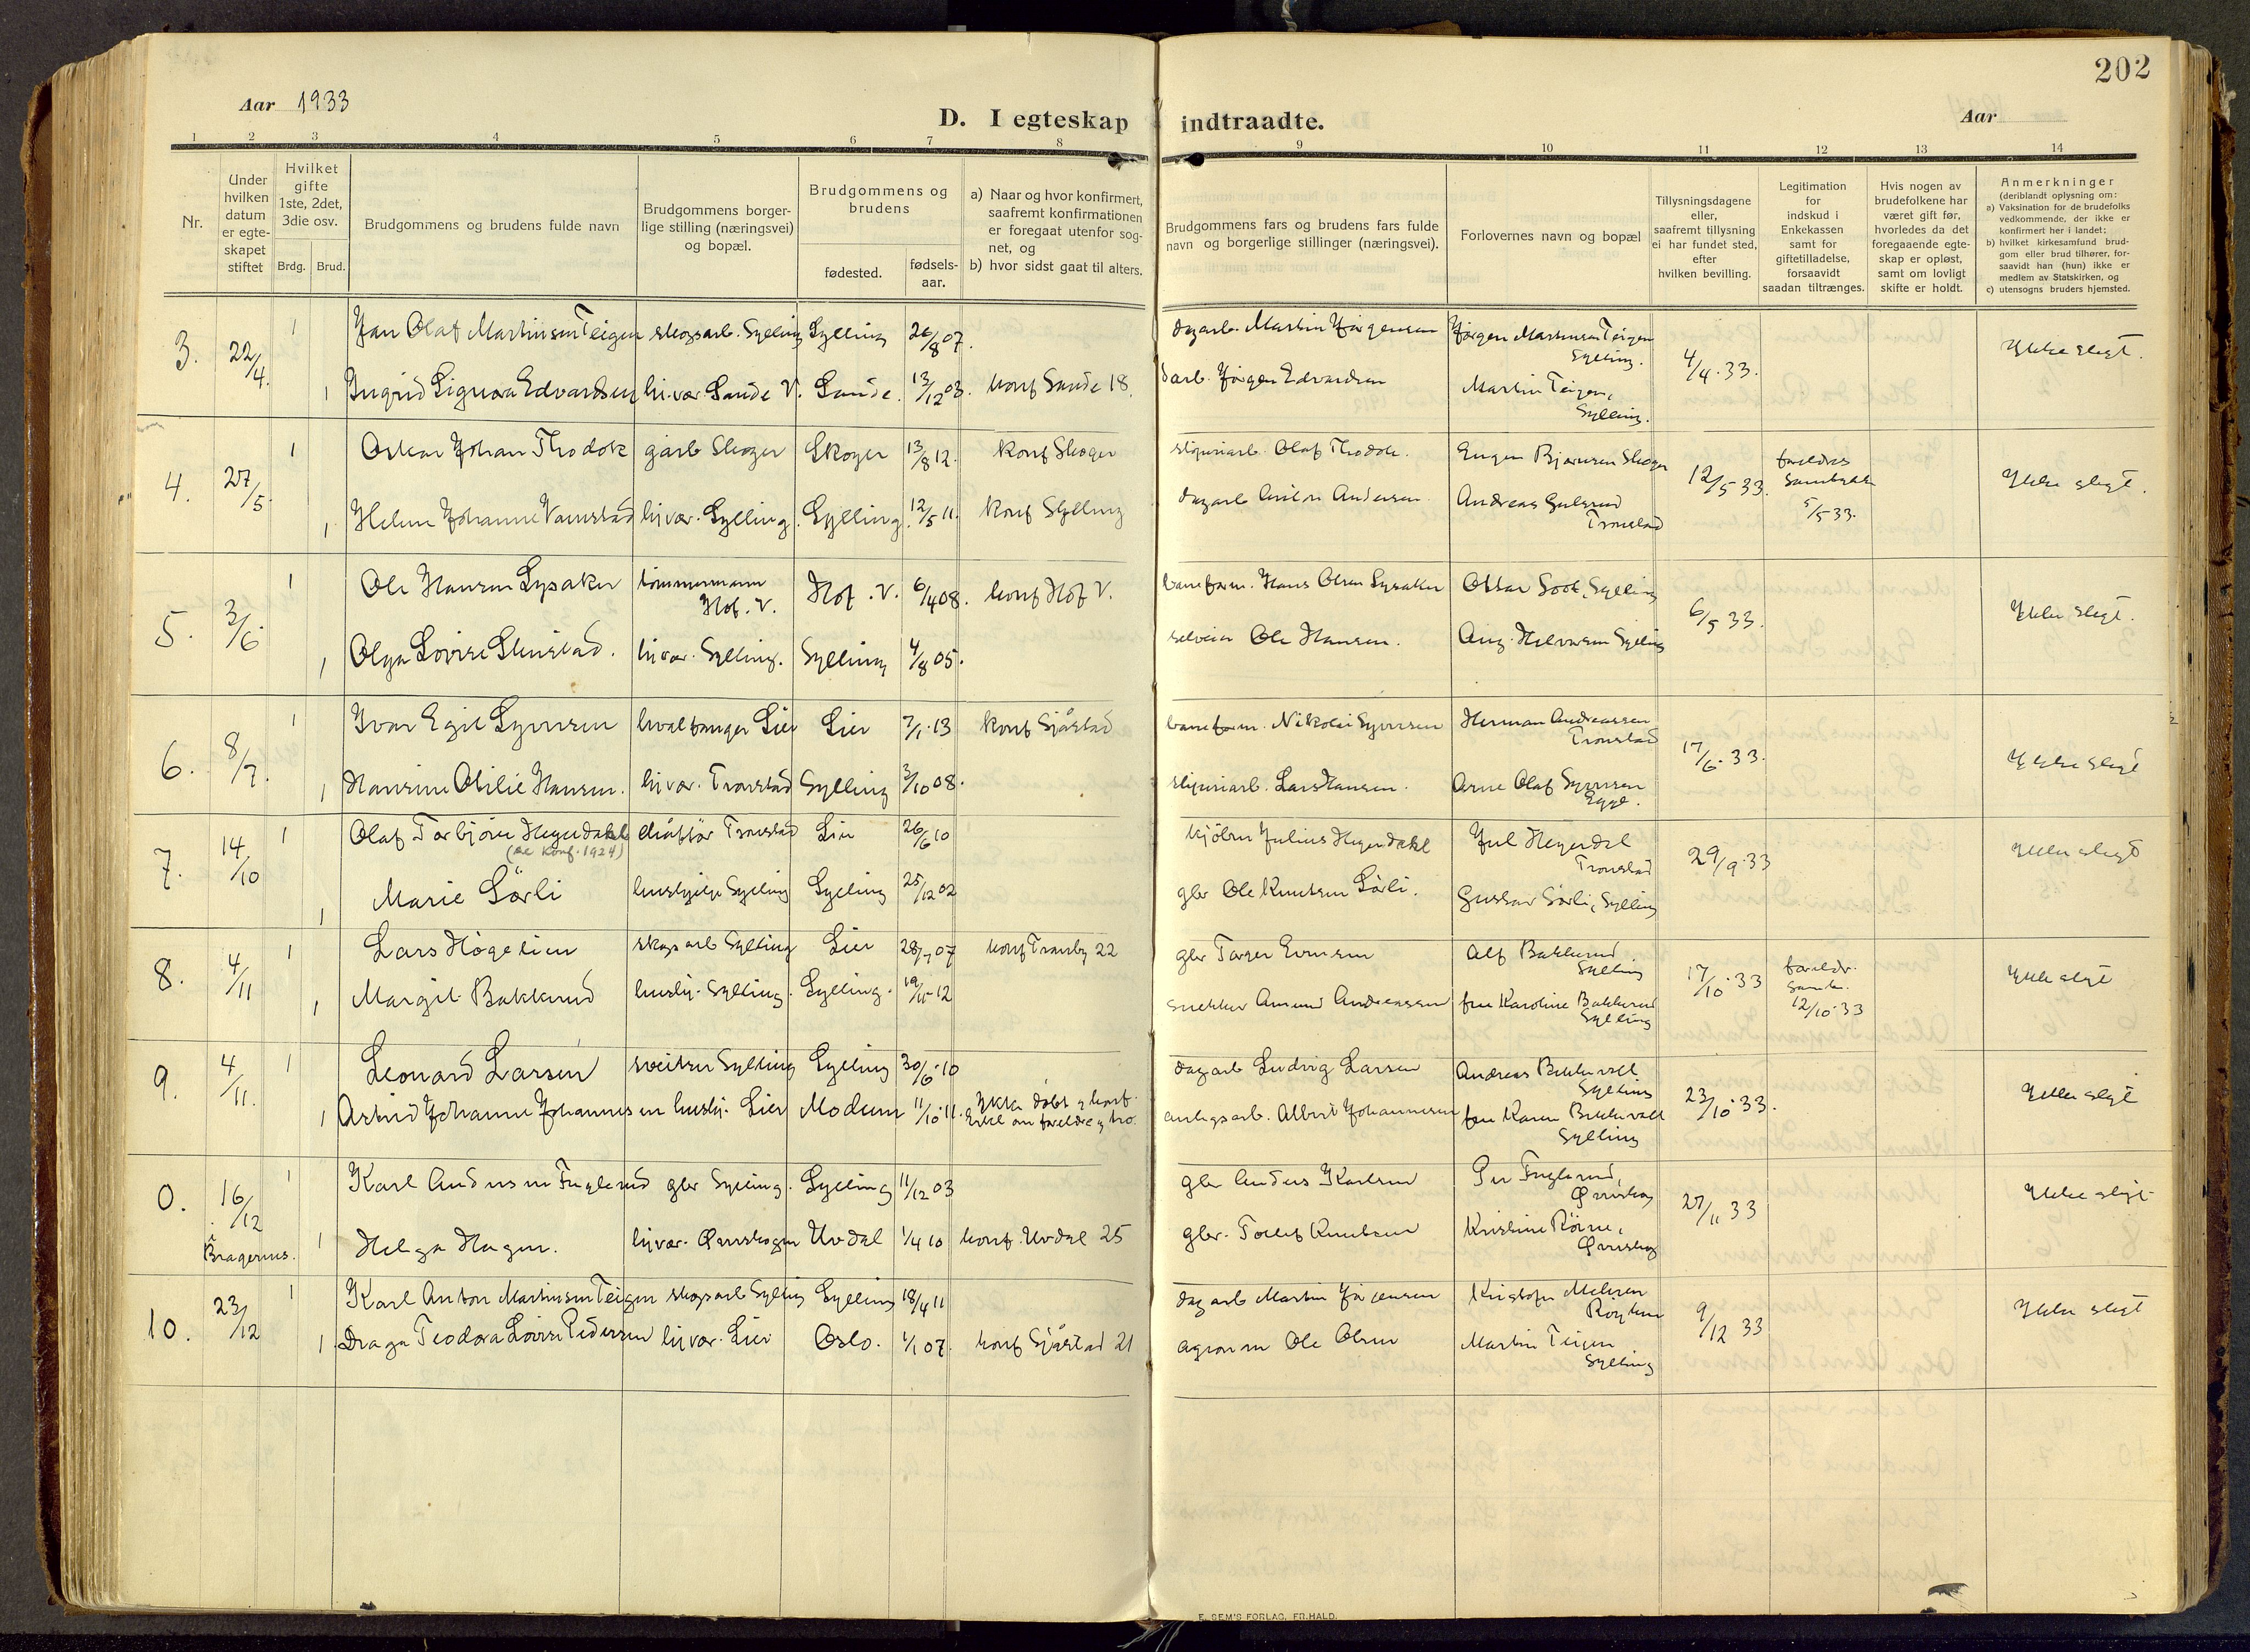 202
Aar 1933
D. I egteskap indtraadte.
Aar
1 2 3 4 5 6 7 8 9 10 11 12 13 14
Nr.
Under hvilken datum er egte-skapet stiftet
Hvilket gifte 1ste, 2det, 3die osv.
Brdg. Brud.
Brudgommens og brudens fulde navn
Brudgommens borger-lige stilling (næringsvei) og bopæl.
Brudgommens og brudens
fødested.
fødsels-aar.
a) Naar og hvor konfirmert, saafremt konfirmationen er foregaat utenfor sog-net, og
b) hvor sidst gaat til alters.
Brudgommens fars og brudens fars fulde navn og borgerlige stillinger (næringsvei).
Forlovernes navn og bopæl
Tillysningsdagene eller, saafremt tillysning ei har fundet sted, efter hvilken bevilling.
Legitimation for indskud i Enkekassen samt for giftetilladelse, forsaavidt saadan tiltrænges.
Hvis nogen av brudefolkene har været gift før, hvorledes da det foregaaende egte-skap er opløst, samt om lovligt skifte er holdt.
Anmerkninger
(deriblandt oplysning om:
a) Vaksination for de brudefolks vedkommende, der ikke er konfirmert her i landet;
b) hvilket kirkesamfund brud-gom eller brud tilhører, for-saavidt han (hun) ikke er medlem av Statskirken, og
c) utensogns bruders hjemsted.
3. 22/4. 1 Jan Olaf Martinsen Teigen skogsarb. Sylling Sylling 26/8 07. dagarb. Martin Jørgensen Jørgen Martinsen Teigen Sylling. 4/4.33. Ikke slegt.
1 Ingrid Signora Edvardsen hj.vær. Sande V. Sande. 13/12 03. konf Sande 18. darb. Jørgen Edvardsen Martin Teigen, Sylling.
4. 27/5. 1 Oskar Johan Thodok garb Skoger Skoger 13/8 12. konf Skoger sliperiarb. Olaf Thodok. Eugen Bjørnsen Skoger 12/5 33. foreldres samtykke 5/5 33. Ikke slegt.
1 Helene Johanne Vamstad hj.vær. Sylling. Sylling. 12/5 11. konf Sylling dagarb Anton Andersen Andreas Gulsrud Tronstad
5. 3/6. 1 Ole Hansen Lysaker tømmermann Hof. V. Hof. V. 6/4 08. konf Hof V. baneform. Hans Olsen Lysaker Ottar Solt, Sylling 6/5 33. Ikke slegt.
1 Olga Lovise Stenstad. hj.vær. Sylling. Sylling 4/8 05. selveier Ole Hansen. Aug. Halvorsen Sylling
6. 8/7. 1 Ivar Egil Syversen hvalfanger Lier Lier 7/1.13 konf Sjåstad baneform. Nikolai Syversen Herman Andreassen Tronstad 17/6.33. Ikke slegt
1 Hansine Otilie Hansen. hj.vær. Tronstad Sylling 3/10 08. sliperiarb. Lars Hansen. Arne Olaf Syversen Egge.
7. 14/10 1 Olaf Torbjörn Heyerdahl (se konf. 1924) chåffør Tronstad Lier 26/6 10 kjøbm Julius Heyerdahl Jul Heyerdal Tronstad 29/9.33 Ikke slegt
1 Marie Sörli hushjelp Sylling Sylling 25/12 02 gbr Ole Knutsen Sörli. Gustav Sörli, Sylling
8. 4/11 1 Lars Högelien skogsarb Sylling Lier 28/7 07 konf Tranby 22 gbr Torger Evensen Alf Bakkerud Sylling 17/10.33 foreldr. samt. 12/10.33 Ikke slegt
1 Margit Bakkerud hushj. Sylling. Sylling. 19/11-12 snekker Amund Andreassen fru Karoline Bakkerud Sylling
9. 4/11. 1 Leonard Larsen sveitser Sylling Sylling 30/6.10 dagarb Ludvig Larsen Andreas Bakkevoll Sylling 23/10.33. Ikke slegt
1 Astrid Johanne Johannesen hushj. Lier Modum 11/10.11. Ikke døbt og konf. anlegsarb. Albert Johannesen fru Karen Bakkevoll Sylling
0. 16/12 i Bragernes. 1 Karl Andersen Fuglerud gbr Sylling. Sylling 11/12 03 gbr Anders Karlsen Per Fuglerud, Øverskog 27/11 33 Ikke slegt
1 Helga Hagen. hj.vær. Øverskogen Uvdal 1/4 10 konf. Uvdal 25 gbr. Tollef Knutsen Kristine Röine, Øverskog
10. 23/12 1 Karl Anton Martinsen Teigen skogsarb Sylling Sylling 18/4 11 dagarb Martin Jørgensen Kristofer Mehren Royken 9/12 33 Ikke slegt
1 Draga Teodora Lovise Pedersen hj.vær. Lier Oslo. 1/1 07. konf Sjåstad 21 agronom Ole Olsen Martin Teigen Sylling
E. SEM'S FORLAG, FR.HALD.